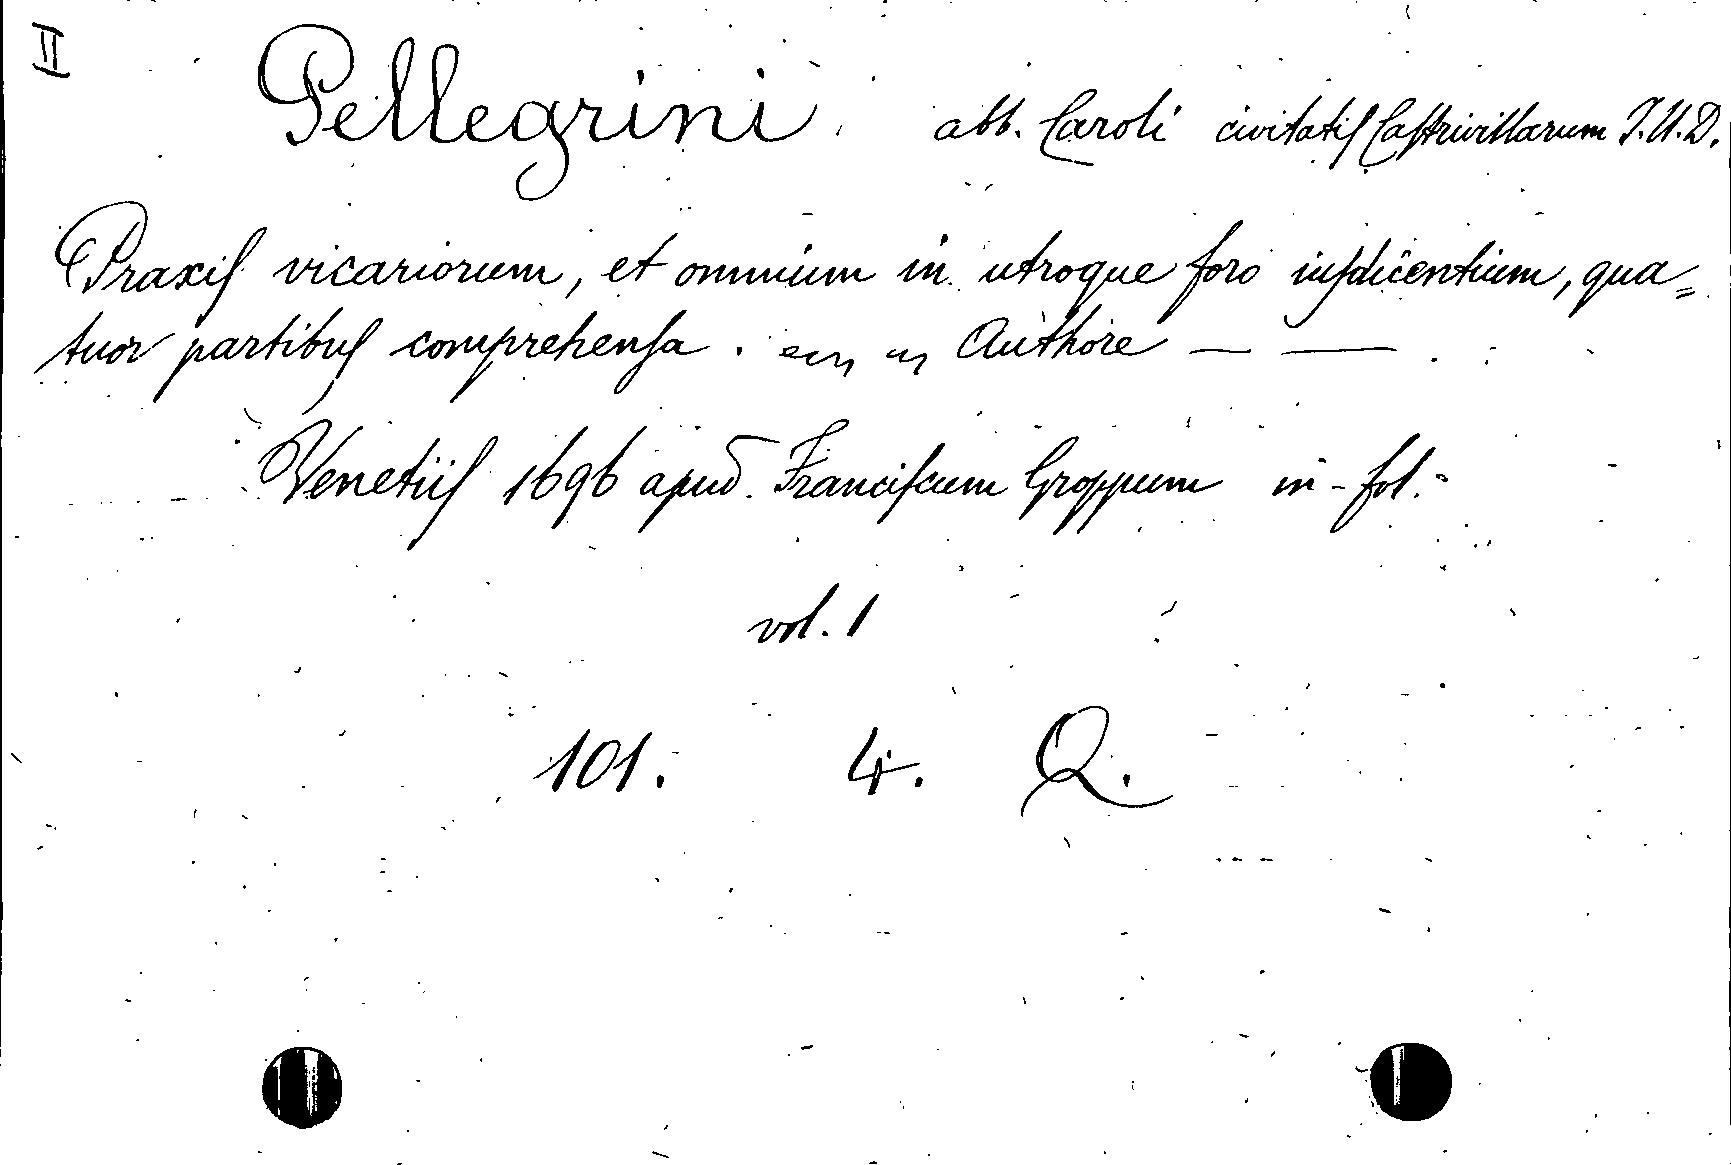 II
Pellegrini abb. Caroli civitatis Castrivillarum I.U.D.
Praxis vicariorum, et omnium in utroque foro iusdicentium, qua=
tuor partibus comprehensa. Authore — —
Venetiis 1696 apud Franciscum Groppum in-fol.
vol. 1
101. 4. Q.